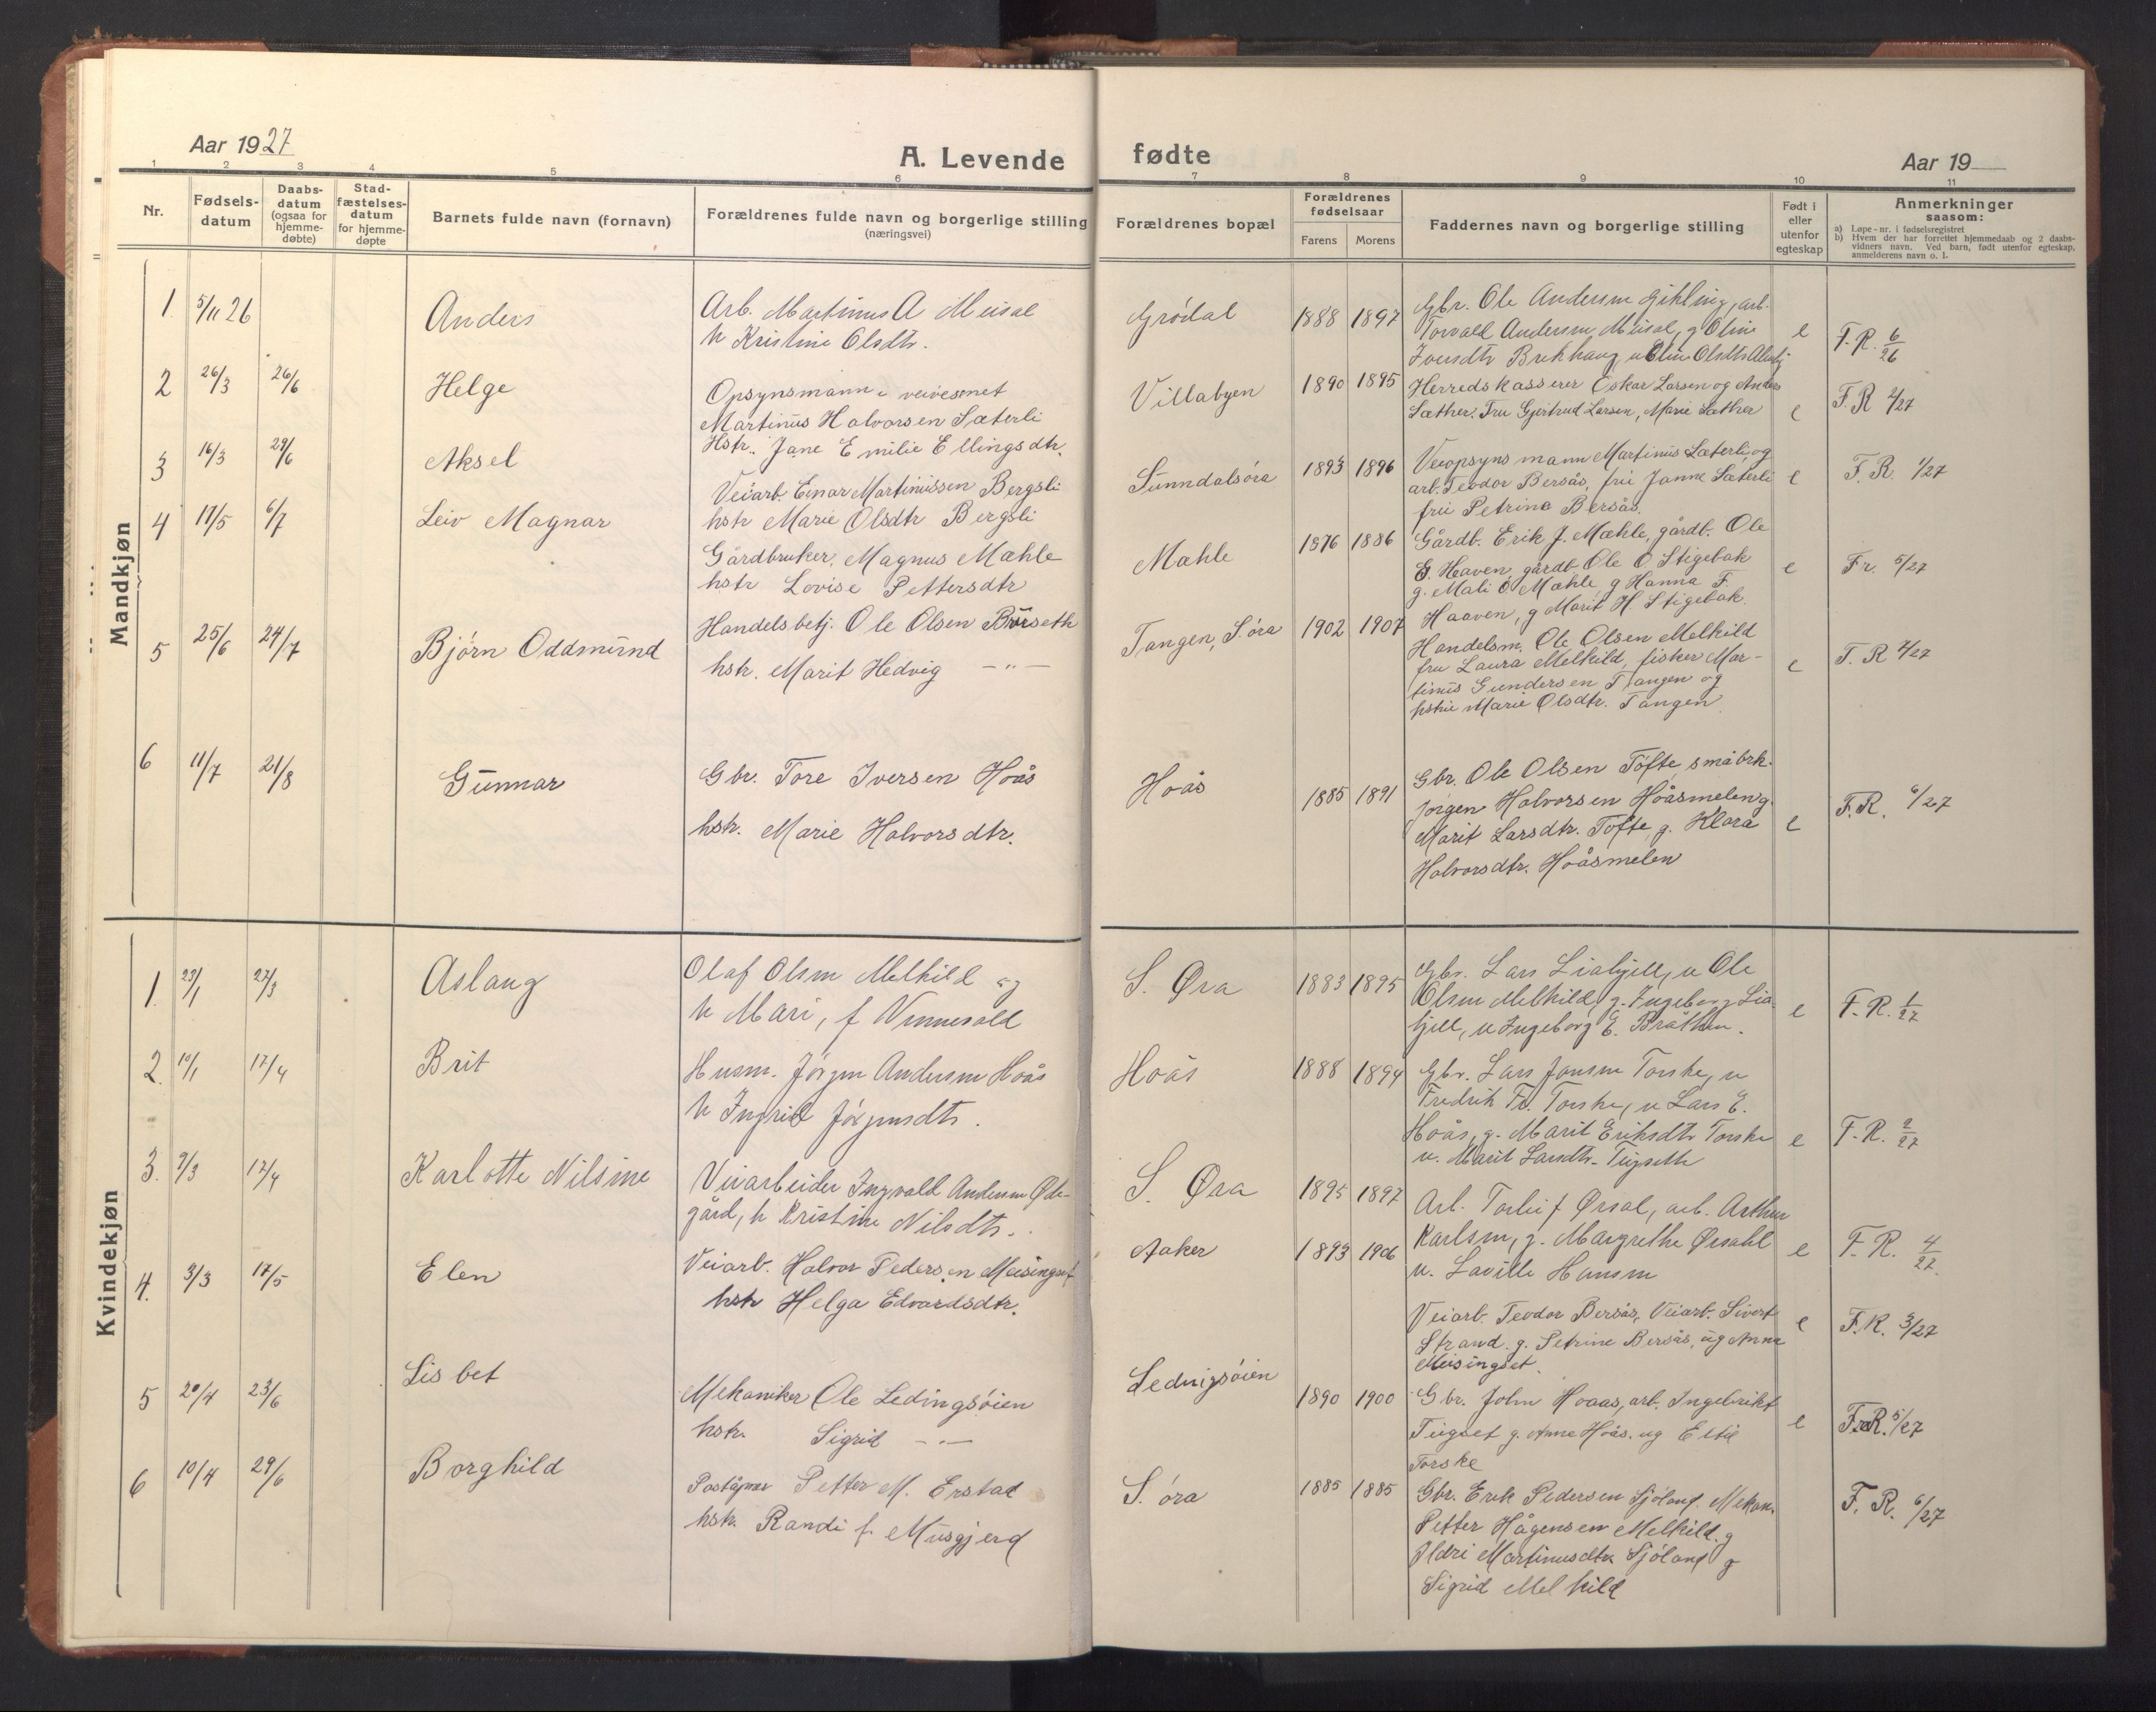 Aar 1927
A. Levende
1
2
3
4
5
6
Nr.
Fødsels-
datum
Daabs-
datum
(ogsaa for
hjemme-
døbte)
Stad-
fæstelses-
datum
for hjemme-
døpte
Barnets fulde navn (fornavn)
Forældrenes fulde navn og borgerlige stilling
(næringsvei)
Mandkjøn
1 5/11 26 Anders
Arb. Martinus A Meisal
h Kristine Olsdtr.
2 26/3 26/6 Helge
Opsynsmann i veivesenet
Martinus Halvorsen Sæterli
Hstr. Jane Emilie Ellingsdtr.
3 16/3 29/6 Aksel
Veiarb. Einar Martinussen Bergsli
hstr Marie Olsdtr Bergsli
4 17/5 6/7 Leiv Magnar
Gårdbruker, Magnus Mæhle
hstr Lovise Pettersdtr
5 25/6 24/7 Bjørn Oddmund
Handelsbetj. Ole Olsen Børseth
hstr. Marit Hedvig — " —
6 11/7 21/8 Gunnar
Gbr. Tore Iversen Hoås
hstr. Marie Halvorsdtr.
Kvindekjøn
1. 23/1 27/3 Aslaug
Olaf Olsen Melkild og
h Mari, f Vinnesold
2. 10/1 17/4 Brit
Husm. Jörgen Andersen Hoås
h Ingrid Jörgensdtr.
3. 7/3 17/4 Karlotte Nilsine
Veiarbeider Ingvald Andersen Øde-
gård, h Kristine Nilsdtr.
4. 3/3 17/5 Elen
Veiarb. Halvor Pedersen Meisingset
hstr Helga Edvardsdtr.
5 20/4 23/6 Lisbet
Mekaniker Ole Ledingsöien
hstr. Sigrid — " —
6 10/4 29/6 Borghild
Poståpner Petter M. Erstad
hstr. Randi f. Musgjerd
fødte
Aar 19
7
8
9
10
11
Forældrenes bopæl
Forældrenes
fødselsaar
Farens
Morens
Faddernes navn og borgerlige stilling
Født i
eller
utenfor
egteskap
Anmerkninger
saasom:
a) Løpe-nr. i fødselsregistret
b) Hvem der har forrettet hjemmedaab og 2 daabs-
vidners navn. Ved barn, født utenfor egteskap,
anmelderens navn o. l.
Grödal 1888 1897
Gbr. Ole Andersen Gikling, arb.
Torvald Andersen Meisal, g Oline
Iversdtr Brekhaug, u Oline Olsdtr
e F. R. 6/26
Villabyen 1890 1895
Herredskasserer Oskar Larsen og Anders
Sæther. Fru Gjertrud Larsen, Marie Sæther
e F. R 2/27
Sunndalsöra 1893 1896
Veiopsynsmann Martinus Sæterli, og
arb. Teodor Bersås, fru Janne Sæterli
fru Petrine Bersås.
e F. R. 1/27
Mæhle 1876 1886
Gårdb. Erik J. Mæhle, gårdb. Ole
E. Haaven, gårdb Ole O. Stigebak
g. Mali O Mæhle g Hanna F.
Haaven, g Marit H Stigebak.
e Fr. 5/27
Tangen, S. öra 1902 1907
Handelsm. Ole Olsen Melkild
fru Laura Melkild, fisker Mar-
tinus Gundersen Tangen og
hstru Marie Olsdtr. Tangen
e F. R 4/27
Hoås 1885 1891
Gbr. Ole Olsen Töfte småbrk.
Jörgen Halvorsen Hoåsmelen g.
Marit Larsdtr. Töfte, g. Klara
Halvorsdtr. Hoåsmelen
e F.R. 6/27
S. Øra 1883 1895
Gbr. Lars Liafjell, u Ole
Olsen Melkild, g. Ingeborg Lia-
fjell, u Ingeborg E. Bråthen.
e F. R. 1/27
Hoås 1888 1894
Gbr. Lars Jonsen Torske, u
Fredrik Fr. Torske, u Lars E.
Hoås, g. Marit Eriksdtr Torske
u. Marit Larsdtr. Tugseth
e F. R. 2/27
S. Øra 1895 1897
Arb. Torleif Ørsal, arb. Arthur
Karlsen, g. Margrethe Ørsahl
u. Laville Hansen
e F. R. 4/27
Aaker 1893 1906
Veiarb. Teodor Bersås, Veiarb. Sivert
Strand. g. Petrine Bersås, ug Anna
Meisingset.
e F.R. 3/27
Ledingsöien 1890 1900
Gbr. John Hoaas, arb. Ingebrikt
Tugset g. Anne Hoås. ug
Torske
e F.R. 5/27
S. öra 1885 1885
Gbr. Erik Pedersen Sjöland. Mekan.
Petter Hågensen Melkild. g
Ildri Martinusdtr Sjöland g
Sigrid Melkild
F. R. 6/27